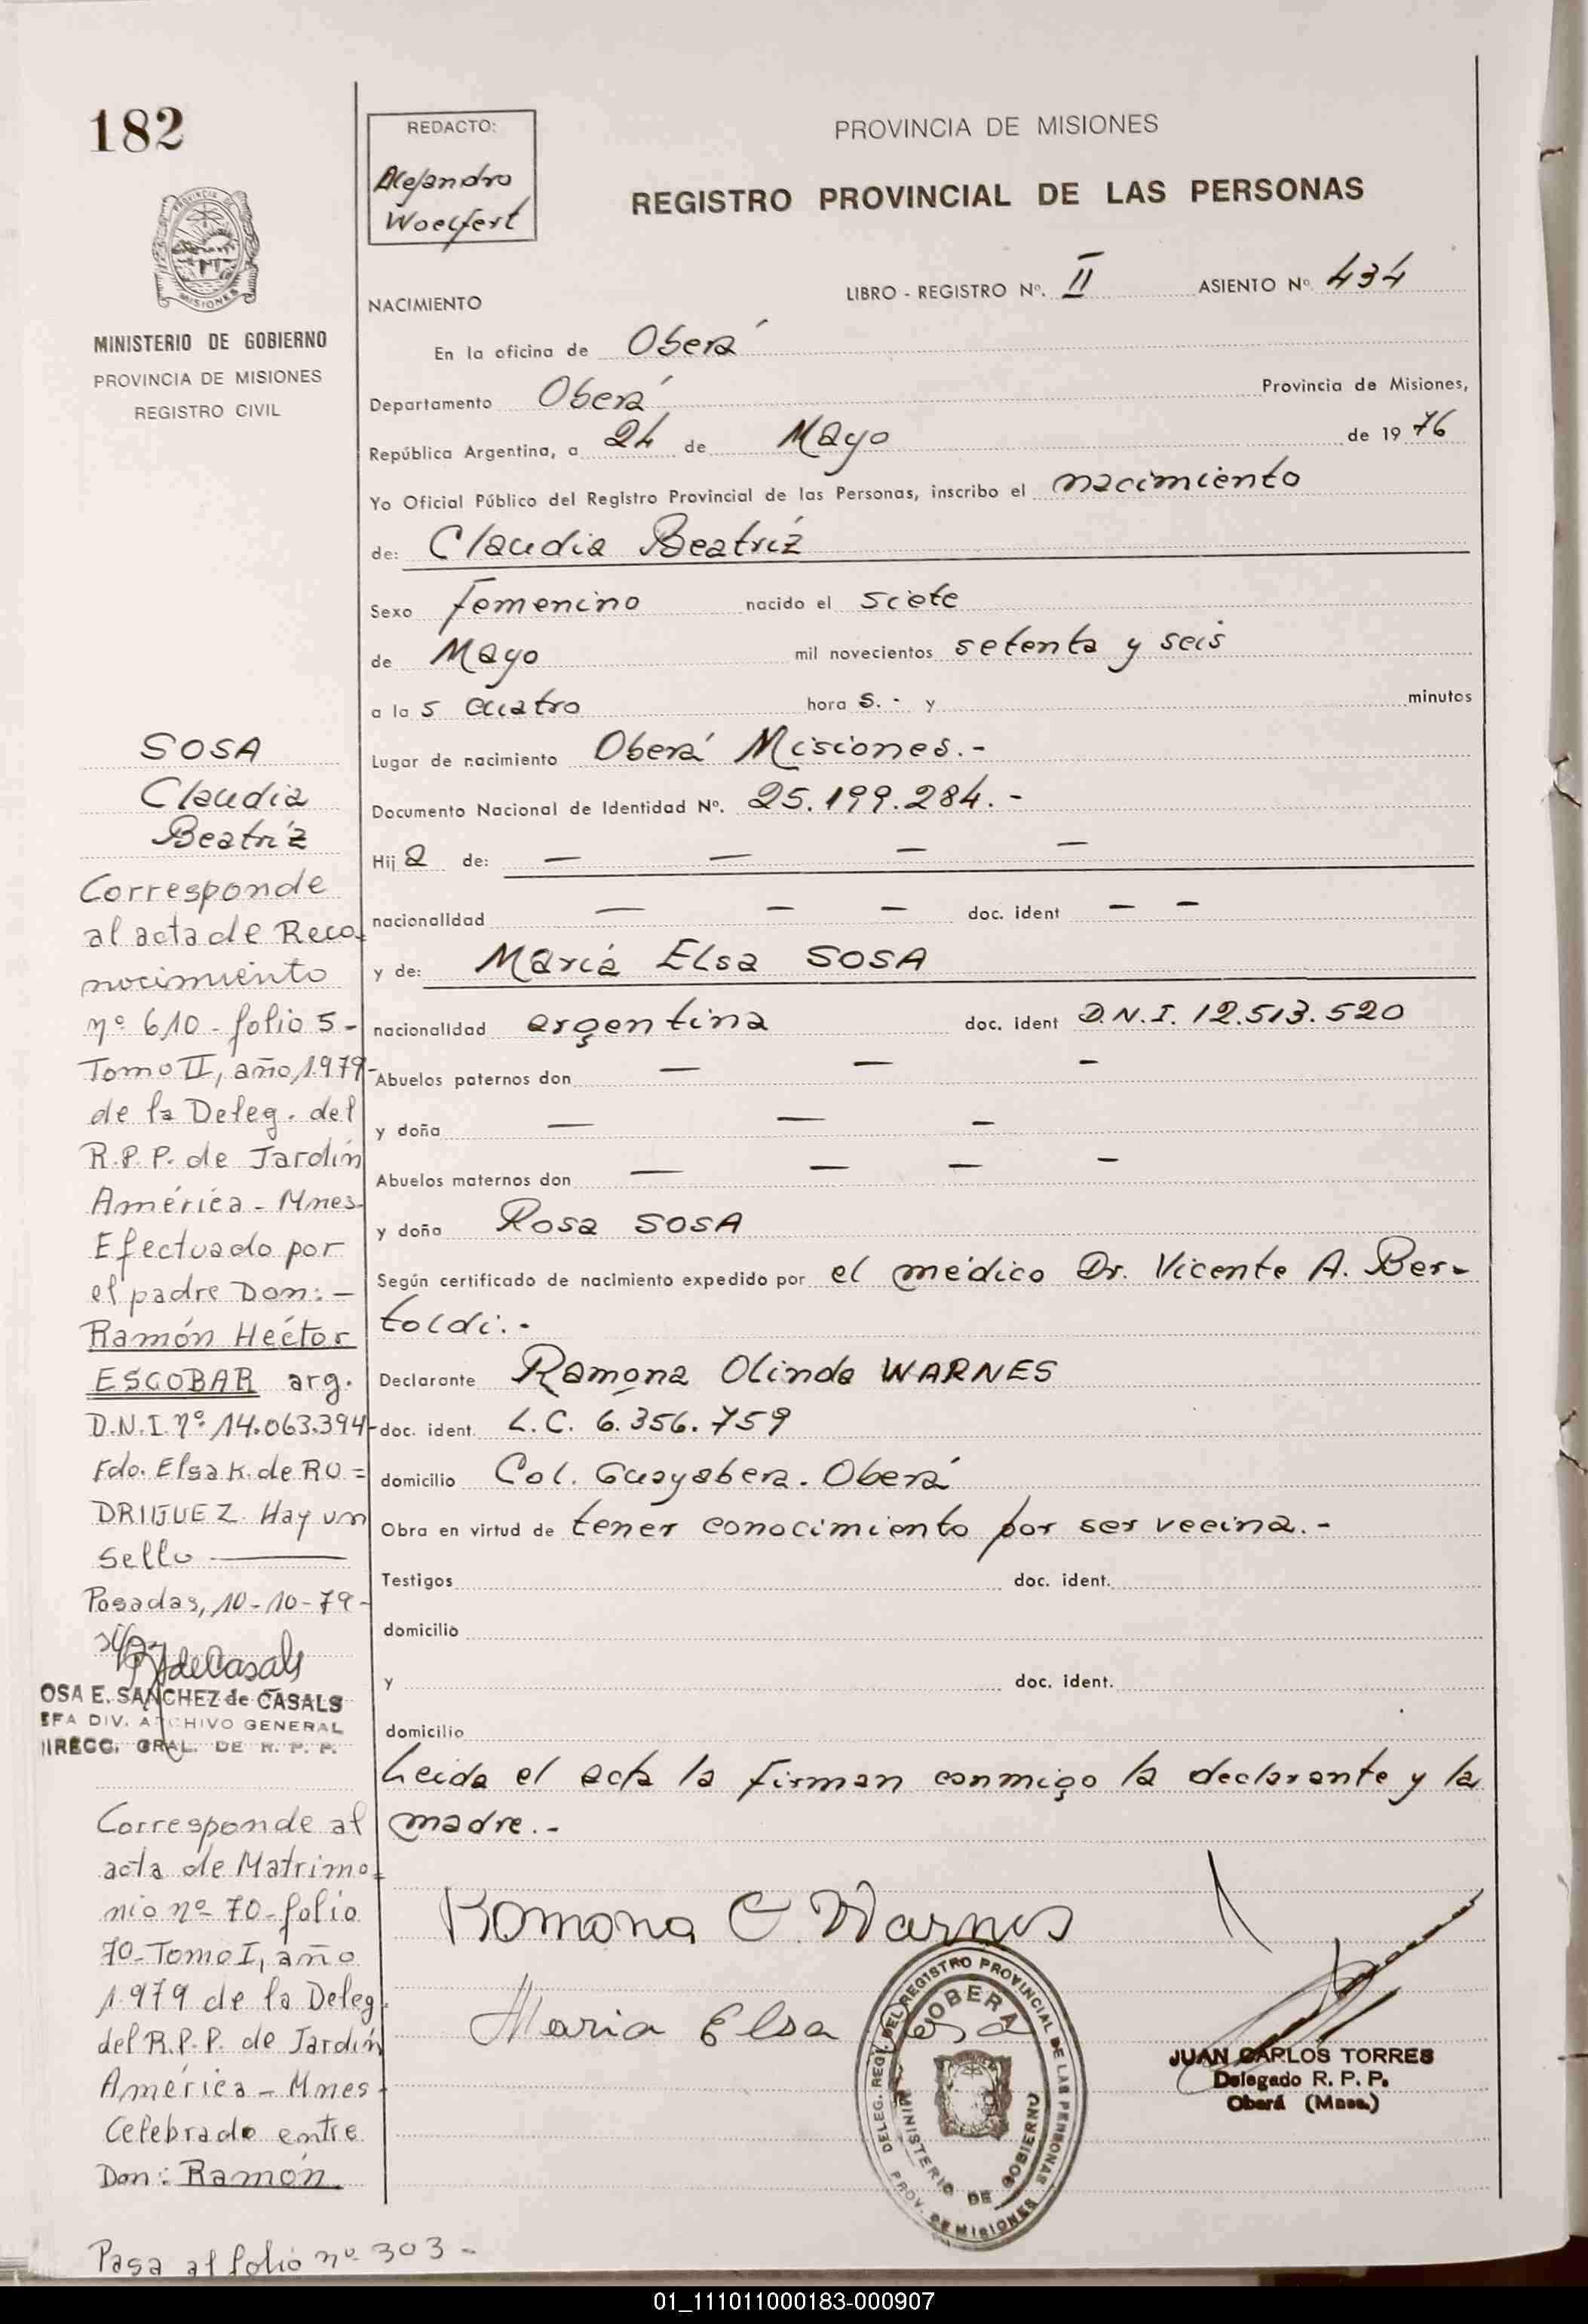 182
MINISTERIO DE GOBIERNO
PROVINCIA DE MISIONES
REGISTRO CIVIL
REDACTO:
Alejandro
Woelfert
PROVINCIA DE MISIONES
REGISTRO PROVINCIAL DE LAS PERSONAS
LIBRO - REGISTRO Nº. II ASIENTO Nº 434
NACIMIENTO
En la oficina de Oberá
Departamento Oberá Provincia de Misiones,
República Argentina, a 24 de Mayo de 1976
Yo Oficial Público del Registro Provincial de las Personas, inscribo el nacimiento
de: Claudia Beatríz
Sexo Femenino nacido el siete
de Mayo mil novecientos setenta y seis
a la s cuatro hora s.- y minutos
Lugar de nacimiento Oberá Misiones.-
Documento Nacional de Identidad Nº. 25.199.284.-
Hij a de: — — — —
nacionalidad — — — doc. ident — —
y de: María Elsa SOSA
nacionalidad argentina doc. ident D.N.I. 12.513.520
Abuelos paternos don — — —
y doña — — —
Abuelos maternos don — — — —
y doña Rosa SOSA
Según certificado de nacimiento expedido por el médico Dr. Vicente A. Ber-
toldi.-
Declarante Ramona Olinda WARNES
doc. ident. L.C. 6.356.759
domicilio Col. Guayabera. Oberá
Obra en virtud de tener conocimiento por ser vecina.-
Testigos doc. ident.
domicilio
y doc. ident.
domicilio
Leida el acta la firman conmigo la declarante y la
madre.-
Ramona O. Warnes
Maria Elsa Sosa
DELEG. REG. DEL REGISTRO PROVINCIAL DE LAS PERSONAS
OBERA
MINISTERIO DE GOBIERNO
PROV. DE MISIONES
JUAN CARLOS TORRES
Delegado R. P. P.
Oberá (Mnes.)
SOSA
Claudia
Beatríz
Corresponde
al acta de Reco-
nocimiento
nº 610 - folio 5-
Tomo II, año 1979-
de la Deleg. del
R.P.P. de Jardín
América - Mnes-
Efectuado por
el padre Don: -
Ramón Héctor
ESCOBAR arg.
D.N.I. nº 14.063.394-
Fdo. Elsa K. de RO=
DRIIJUEZ. Hay un
Sello ———
Posadas, 10-10-79-
OSA E. SANCHEZ de CASALS
EFA DIV. ARCHIVO GENERAL
IRECC. GRAL. DE R. P. P.
Corresponde al
acta de Matrimo=
nio nº 70-folio
70-Tomo I, año
1.979 de la Deleg.
del R.P.P. de Jardín
América - Mnes-
Celebrado entre
Don: Ramón
Pasa al folio nº 303-
01_111011000183-000907